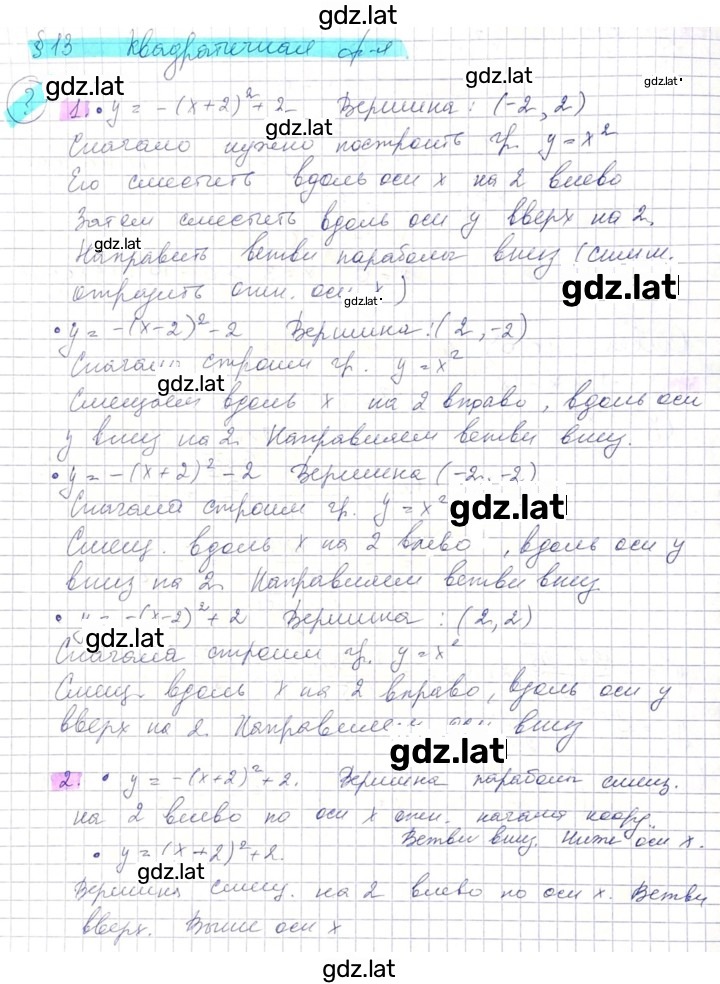 gdz.latt
§ 13 Квадратичная ф-я
gdz.latt
gdz.latt
gdz.latt
?
1. • y = -(x+2)²+2 Вершина: (-2, 2)
gdz.latt
Сначало нужно построить гр. y = x²
Его сместить вдоль оси x на 2 влево
Затем сместить вдоль оси y вверх на 2.
gdz.latt
Направить ветви параболы вниз (симм.
gdz.latt
отразить отн. оси )
gdz.latt
• y = -(x-2)² - 2 Вершина: (2, -2)
Сначала строим гр. y = x²
gdz.latt
Смещаем вдоль x на 2 вправо, вдоль оси
y вниз на 2. Направляем ветви вниз.
• y = -(x+2)² - 2 Вершина (-2, -2)
Сначала строим гр. y = x²
gdz.latt
Смещ. вдоль x на 2 влево, вдоль оси y
вниз на 2. Направляем ветви вниз
• -(x-2)² + 2 Вершина: (2, 2)
gdz.latt
Сначала строим гр. y = x²
Смещ. вдоль x на 2 вправо, вдоль оси y
вверх на 2. Направляем вниз
gdz.latt
2. • y = -(x+2)²+2. Вершина параболы смещ.
на 2 влево по оси x отн. начала коорд.
Ветви вниз. Ниже оси x.
• y = (x+2)²+2.
gdz.latt
Вершина смещ. на 2 влево по оси x. Ветви
вверх. Выше оси x
gdz.latt